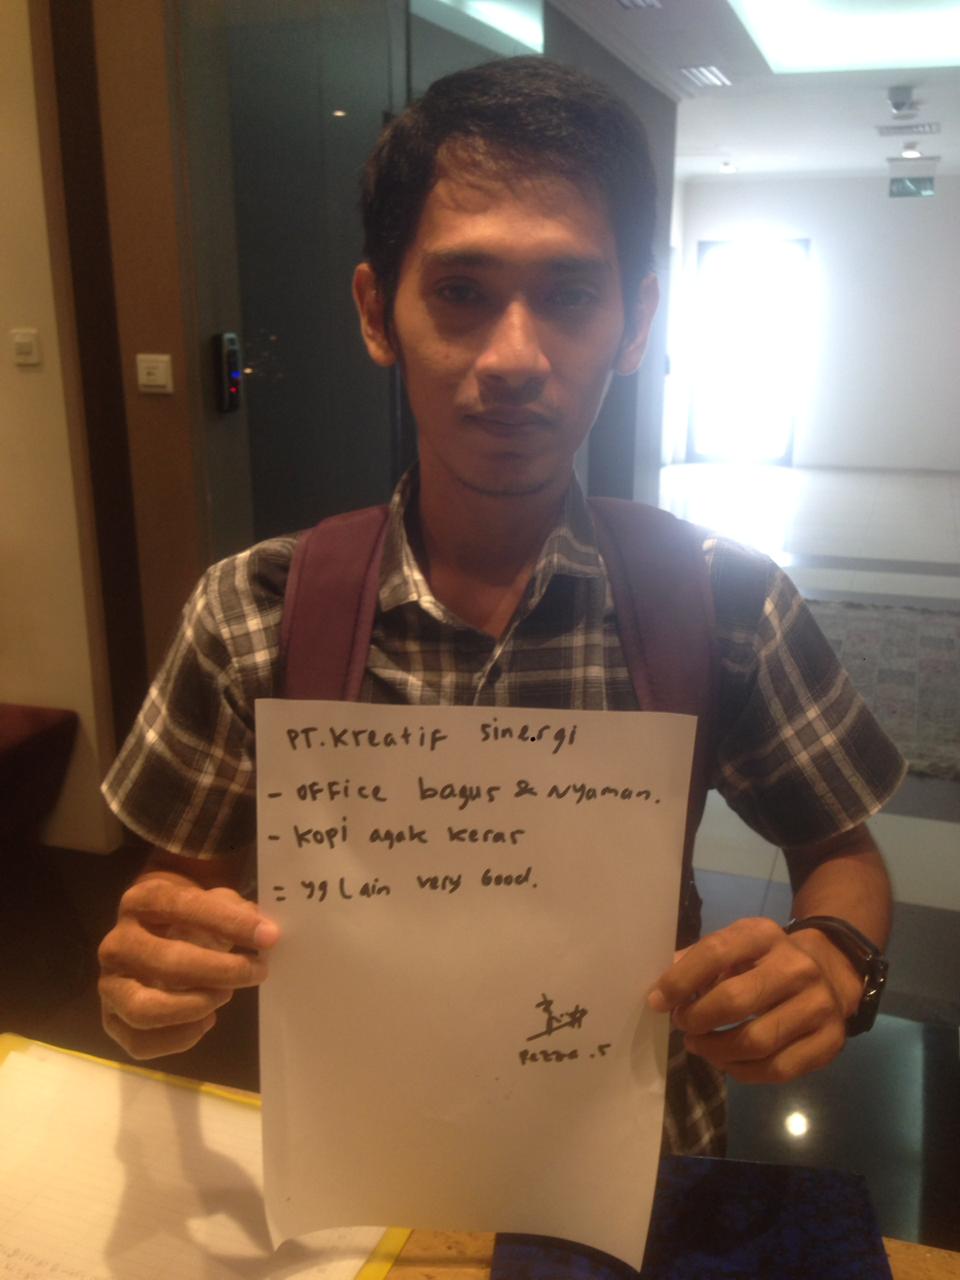 PT. Kreatif Sinergi
- Office bagus & Nyaman.
- Kopi agak keras
= yg Lain very Good.
Rezza . S